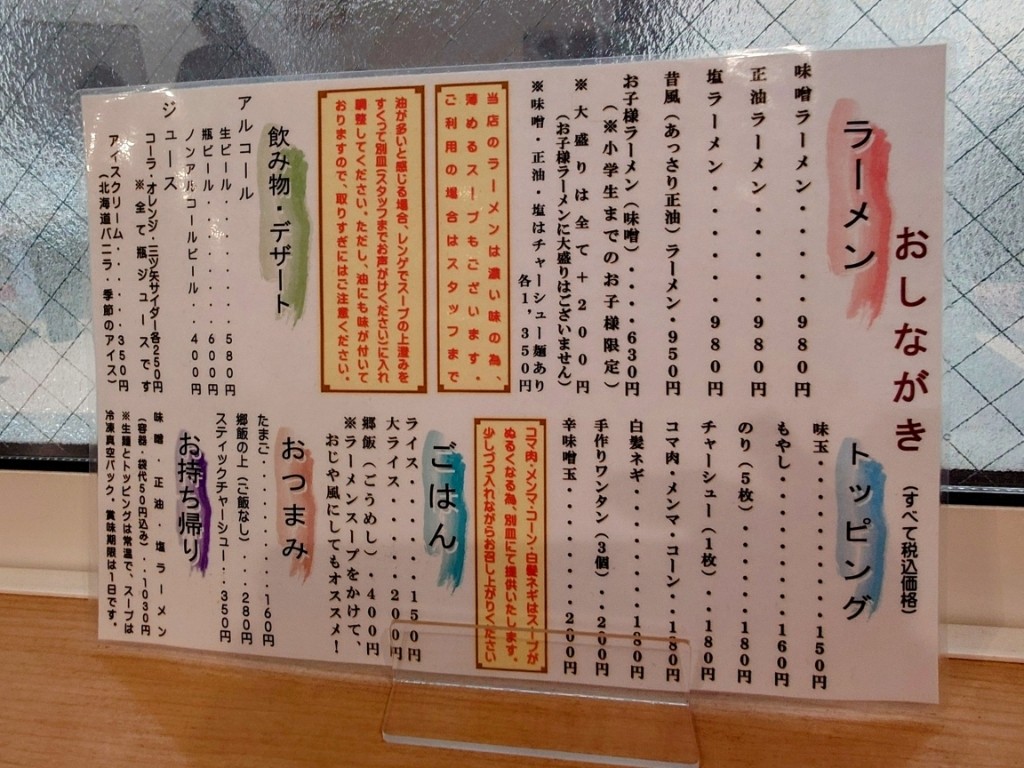 おしながき
(すべて税込価格)
ラーメン
味噌ラーメン・・・・・・980円
正油ラーメン・・・・・・980円
塩ラーメン・・・・・・・980円
昔風(あっさり正油)ラーメン・950円
お子様ラーメン(味噌)・・・・630円
(※小学生までのお子様限定)
※大盛りは全て+200円
(お子様ラーメンに大盛りはございません)
※味噌・正油・塩はチャーシュー麺あり
各1,350円
当店のラーメンは濃い味の為、
薄めるスープもございます。
ご利用の場合はスタッフまで
油が多いと感じる場合、レンゲでスープの上澄みを
すくって別皿(スタッフまでお声がけください)に入れ
調整してください。ただし、油にも味が付いて
おりますので、取りすぎにはご注意ください。
飲み物・デザート
アルコール
生ビール・・・・・・・・580円
瓶ビール・・・・・・・・600円
ノンアルコールビール・・400円
ジュース
コーラ・オレンジ・三ツ矢サイダー各250円
※全て瓶ジュースです
アイスクリーム・・・・・350円
(北海道バニラ 季節のアイス)
トッピング
味玉・・・・・・・・・・150円
もやし・・・・・・・・・160円
のり(5枚)・・・・・・180円
チャーシュー(1枚)・・・180円
コマ肉・メンマ・コーン・・180円
白髪ネギ・・・・・・・・180円
手作りワンタン(3個)・・200円
辛味噌玉・・・・・・・・200円
コマ肉・メンマ・コーン・白髪ネギはスープが
ぬるくなる為、別皿にて提供いたします。
少しづつ入れながらお召し上がりください
ごはん
ライス・・・・・・・150円
大ライス・・・・・・200円
郷飯(ごうめし)・400円
※ラーメンスープをかけて、
おじや風にしてもオススメ!
おつまみ
たまご・・・・・・・・・160円
郷飯の上(ご飯なし)・・280円
スティックチャーシュー・・350円
お持ち帰り
味噌・正油・塩ラーメン
(容器・袋代50円込み)・・1030円
※生麺とトッピングは常温で、スープは
冷凍真空パック。賞味期限は1日です。